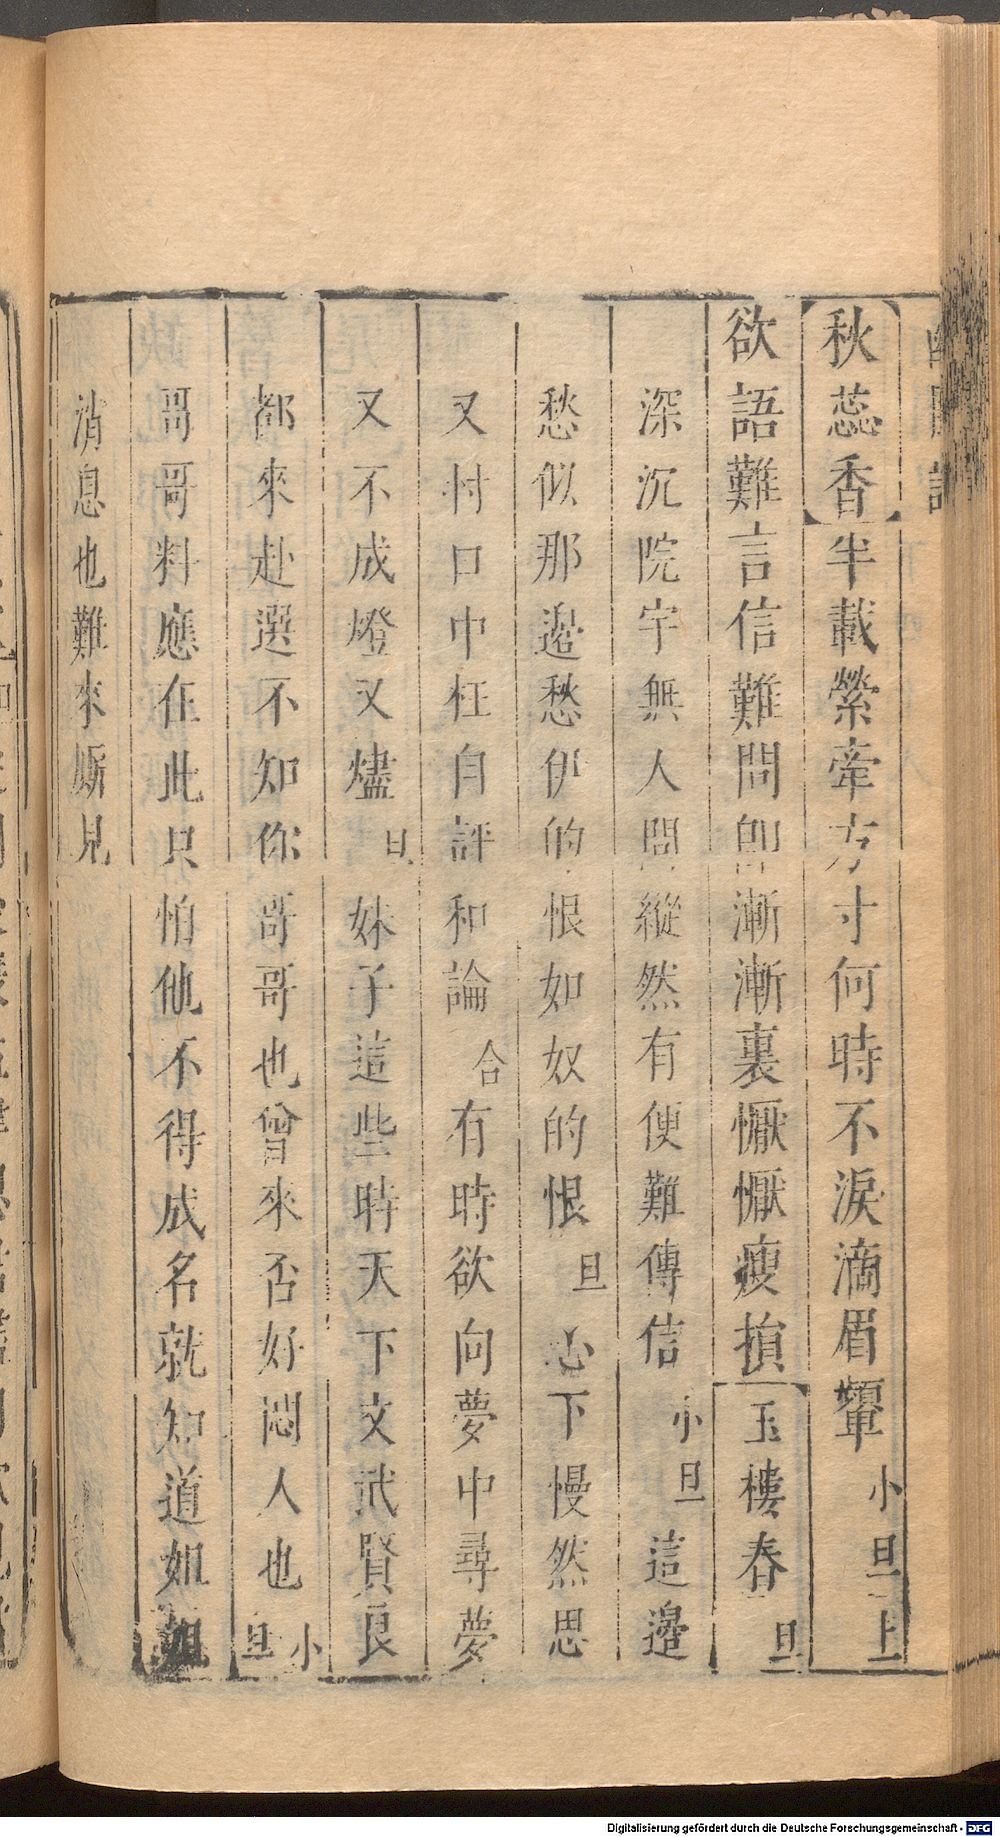 秋蕊香半載縈牽方寸何時不淚滴眉顰小旦上
欲語難言信難問卽漸漸裏懨懨瘦損玉樓春旦
深沉院宇無人問縱然有便難傳信小旦這邉
愁似那邉愁伊的恨如奴的恨旦心下慢然思
又忖口中枉自評和論合有時欲向夢中尋夢
又不成燈又燼旦妹子這些時天下文武賢良
都來赴選不知你哥哥也曾來否好悶人也小旦
哥哥料應在此只怕他不得成名就知道如
消息也難來厮見
Digitalisierung gefördert durch die Deutsche Forschungsgemeinschaft - DFG